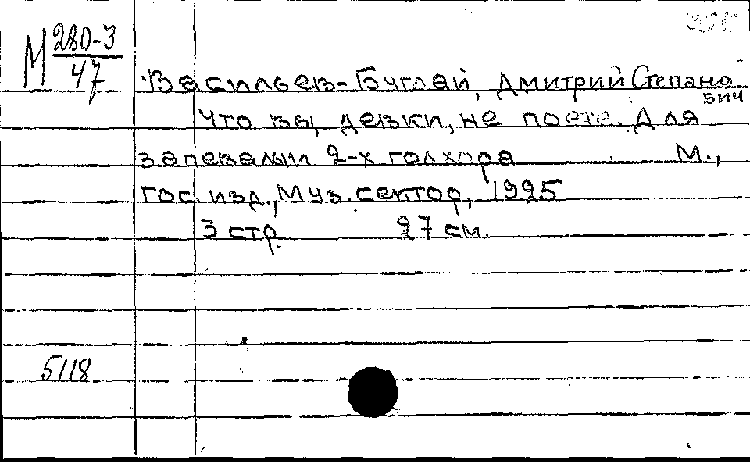 М 280-3
47
Васильев-Буглай, Дмитрий Степано-
вич
Что вы, девки, не поете. Для
запевалы 2-х гол хора М.,
Гос изд., Муз. сектор, 1925
3 стр. 27 см.
5118